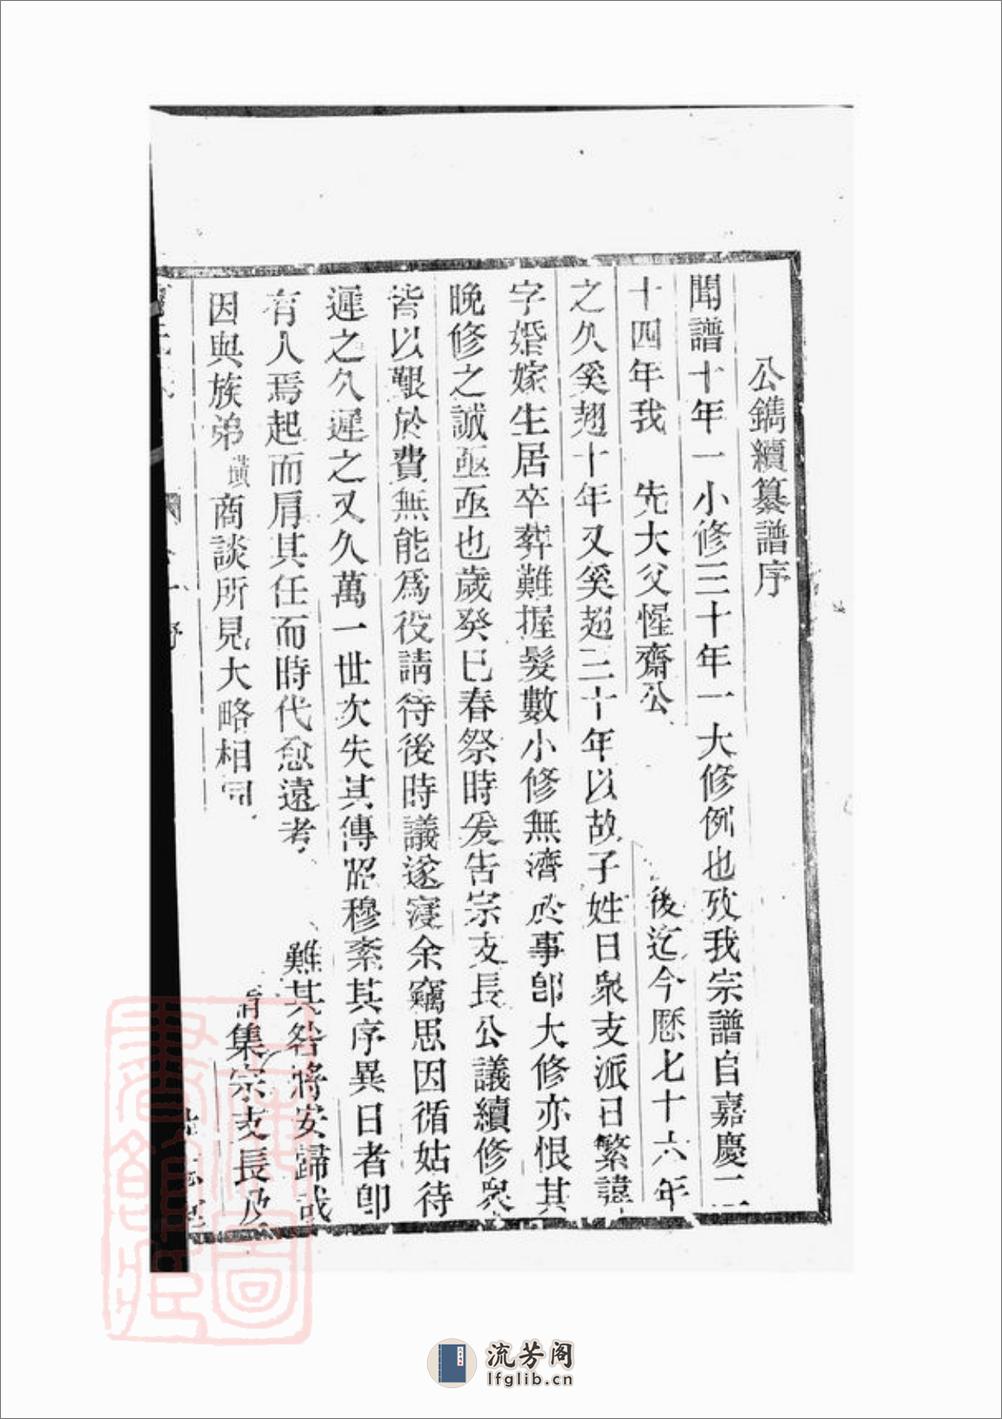 公鐫續纂譜序
聞譜十年一小修三十年一大修例也攷我宗譜自嘉慶二
十四年我 先大父惺齋公 後迄今歷七十六年
之久奚翅十年又奚超三十年以故子姓日衆支派日繁諱
字婚嫁生居卒葬難握髮數小修無濟於事卽大修亦恨其
晚修之誠亟亟也歲癸巳春祭時爰告宗支長公議續修衆
皆以艱於費無能爲役請待後時議遂寢余竊思因循姑待
遲之久遲之又久萬一世次失其傳昭穆紊其序異日者卽
有人焉起而肩其任而時代愈遠考 難其咎將安歸哉
因與族弟 商談所見大略相同 集宗支長及
流芳阁
lfglib.cn